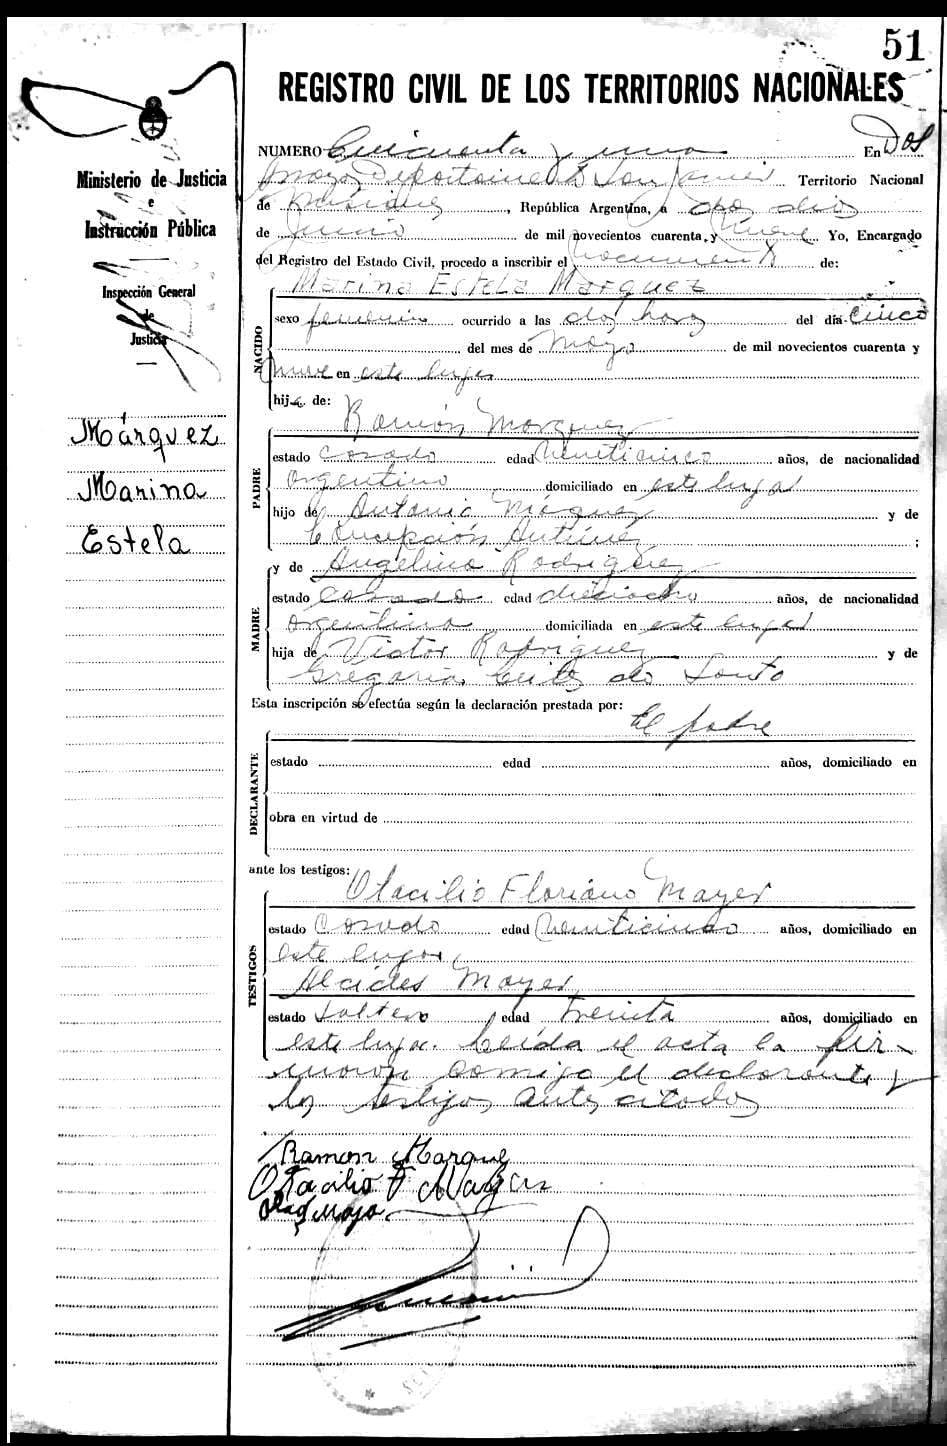 51
REGISTRO CIVIL DE LOS TERRITORIOS NACIONALES
Ministerio de Justicia
e
Instrucción Pública
Inspección General
de
Justicia
Márquez
Marina
Estela
NUMERO Cincuenta y uno En Dos
Arroyos Departamento San Javier Territorio Nacional
de Misiones, República Argentina, a dos días
de Junio de mil novecientos cuarenta y nueve Yo, Encargado
del Registro del Estado Civil, procedo a inscribir el nacimiento de:
Marina Estela Marquez
NACIDO
sexo femenino ocurrido a las dos horas del día cinco
del mes de Mayo de mil novecientos cuarenta y
nueve en este lugar
hija de:
Ramón Marquez
PADRE
estado casado edad veinticinco años, de nacionalidad
argentino domiciliado en este lugar
hijo de Antonio Márquez y de
Concepción Antúnez ;
y de Angelina Rodriguez
MADRE
estado casada edad dieciocho años, de nacionalidad
argentina domiciliada en este lugar
hija de Victor Rodriguez y de
Gregoria do Souto
Esta inscripción se efectúa según la declaración prestada por:
El padre
DECLARANTE
estado edad años, domiciliado en
obra en virtud de
ante los testigos:
Otacilio Floriano Mayer
TESTIGOS
estado Casado edad Veinticinco años, domiciliado en
este lugar,
Alcides Mayer,
estado soltero edad treinta años, domiciliado en
este lugar. Leída el acta la fir-
maron conmigo el declarante y
los testigos antes citados
Ramon Marquez
Otacilio F